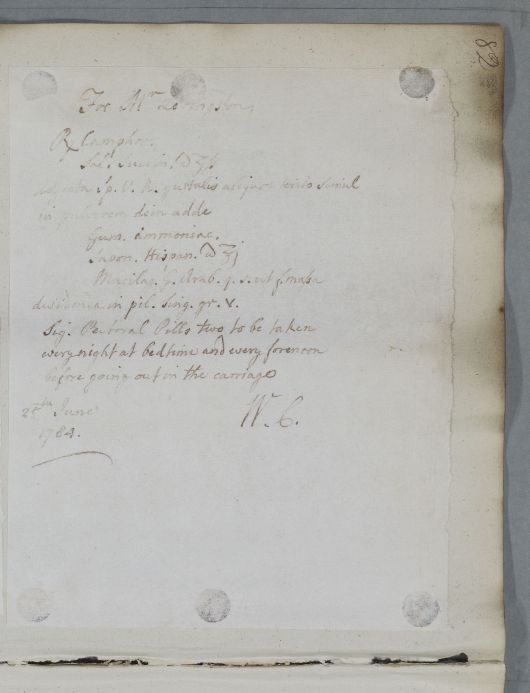 82
For Mr. Livingston
℞ Camphor.
Sal. Succin. a ʒ
Sp. V. R. guttulis aliquot terito simul
in pulverem dein adde
Gum. Ammoniac.
Sapon. Hispan. a ʒj
Mucilag. G. Arab. q. s. ut f. massa
dividenda in pil. sing. gr. v.
Sig. Pectoral Pills two to be taken
every night at bedtime and every forenoon
before going out in the carriage
June
1784.
W. C.